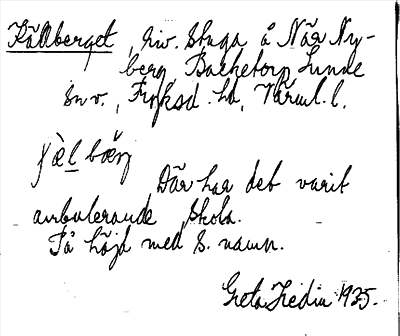 Källberget, riv. Stuga å Näs Ny-
berg, Backetorp, Sunne
sn v., Fryksd. hd, Värml. l.
jæ̀l bærj
Där har det varit
ambulerande skola.
På höjd med s. namn.
Greta Hedin 1935.